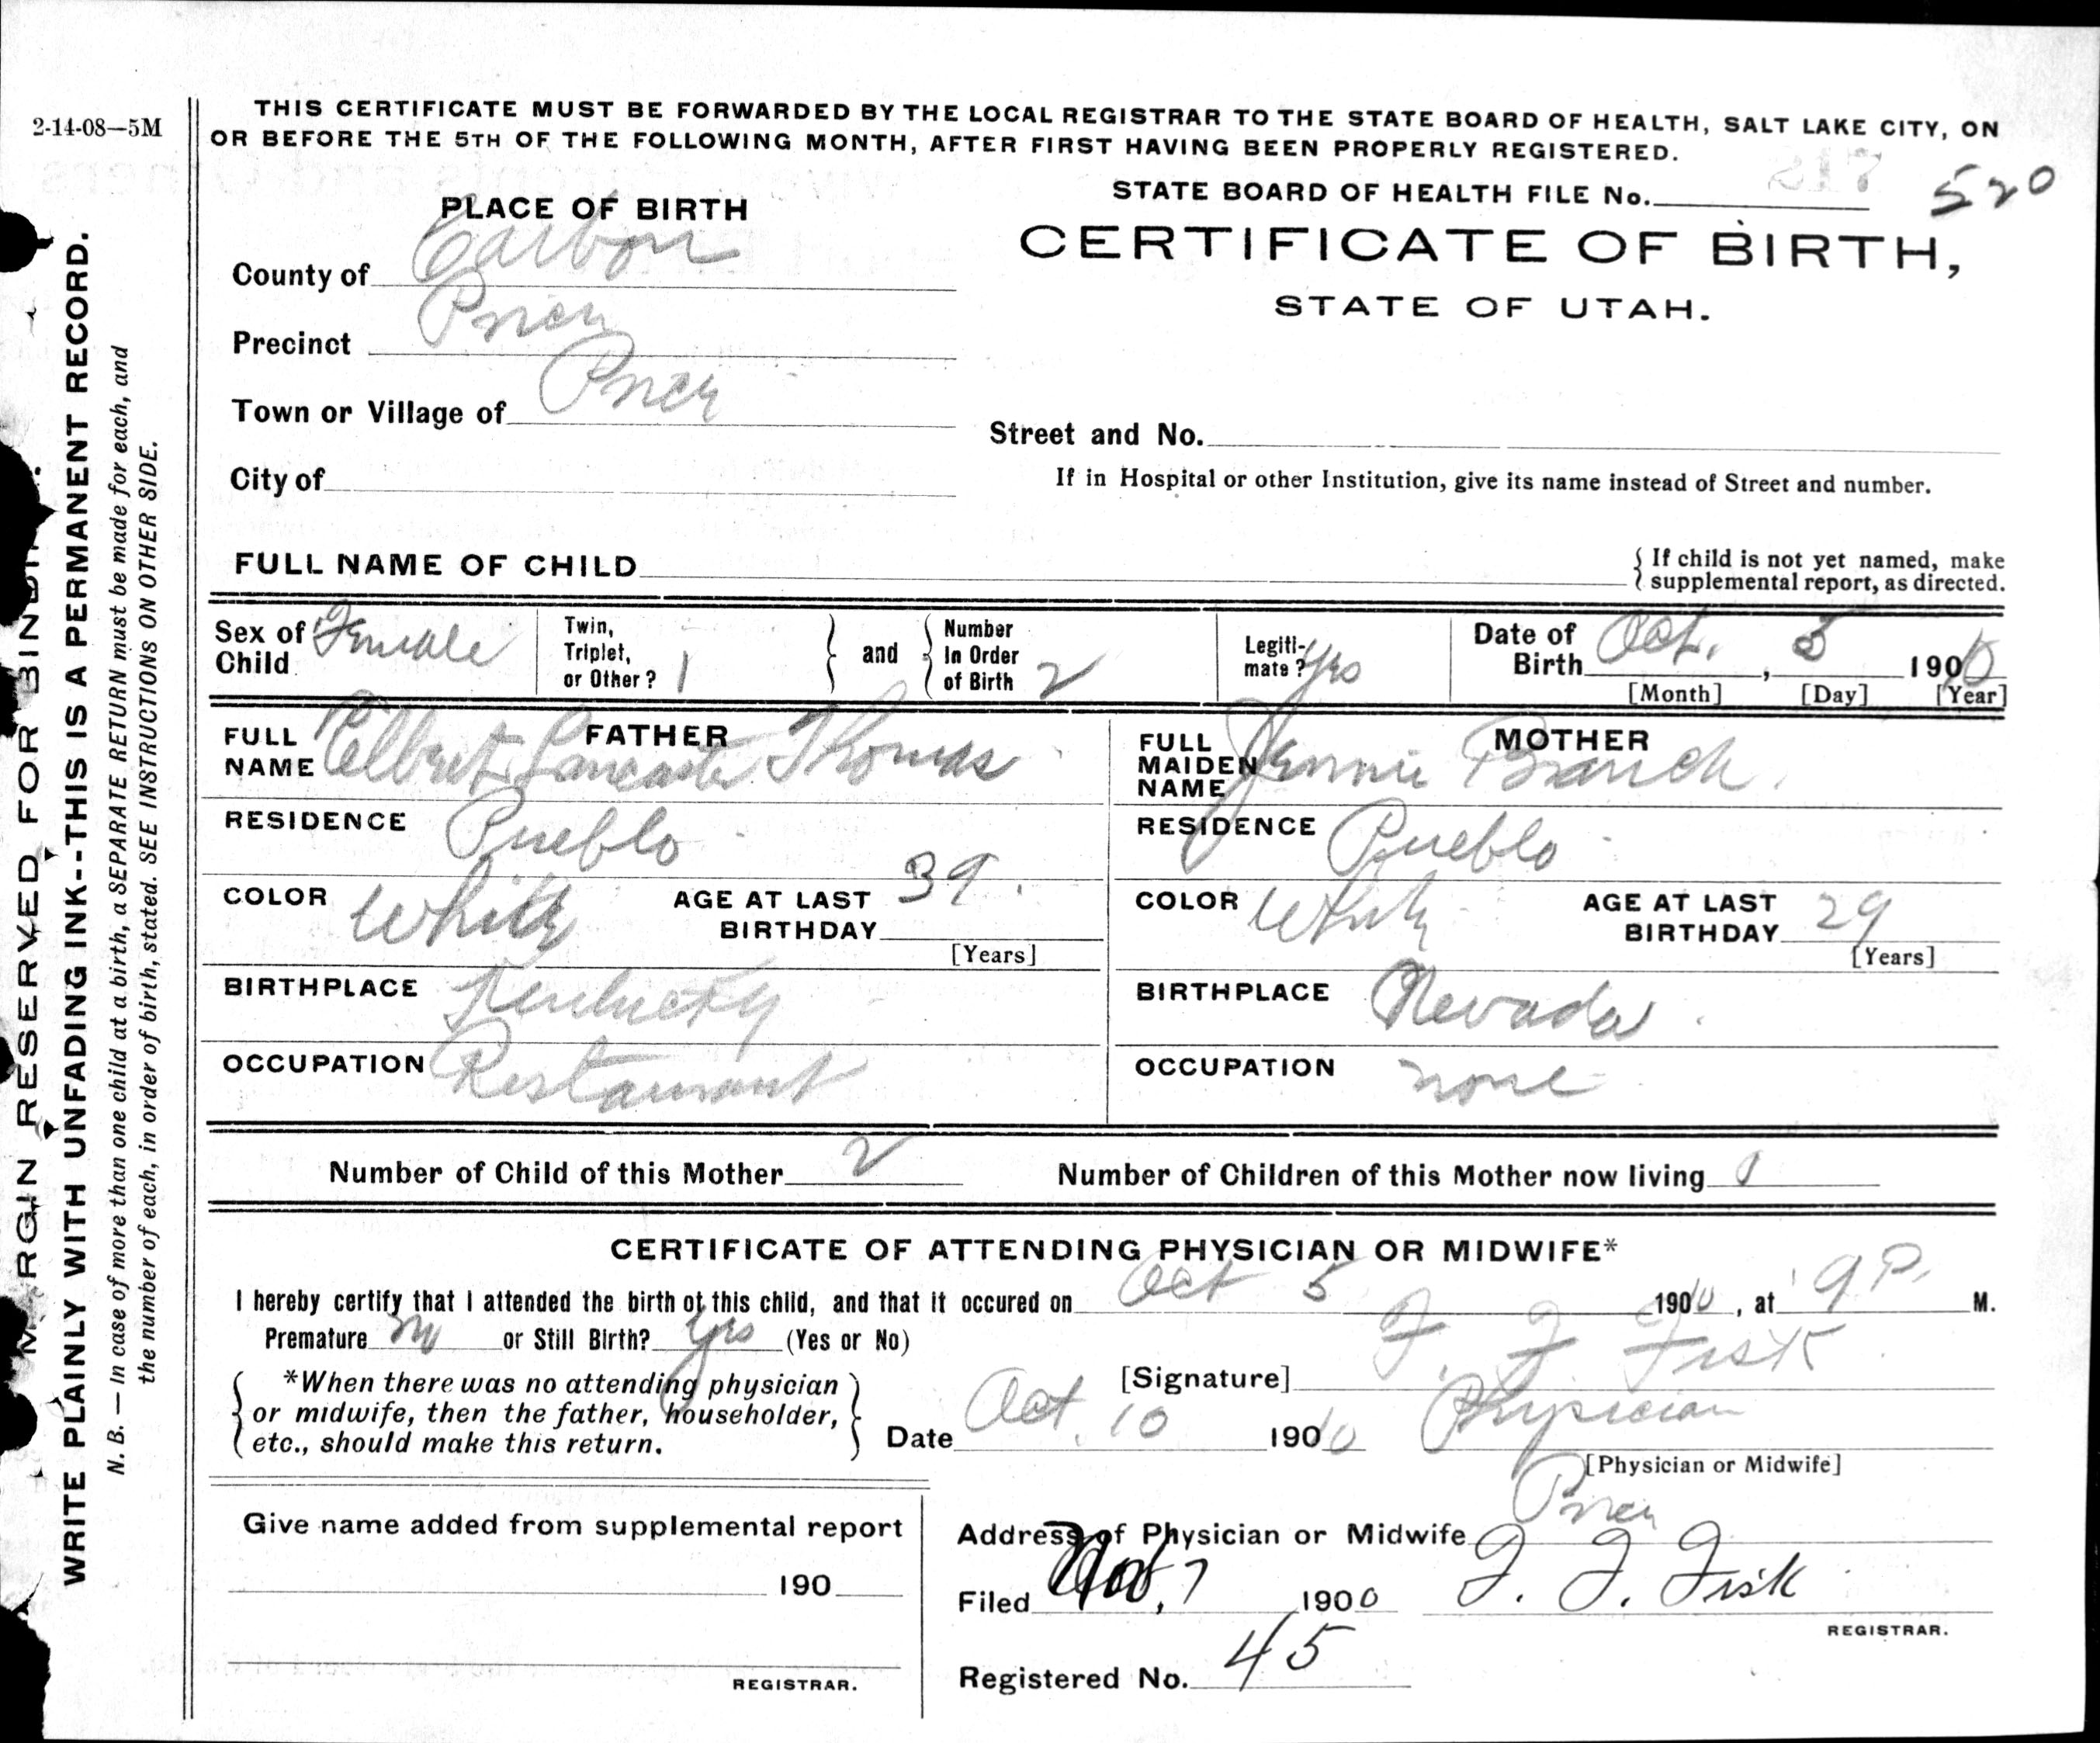 2-14-08—5M
THIS CERTIFICATE MUST BE FORWARDED BY THE LOCAL REGISTRAR TO THE STATE BOARD OF HEALTH, SALT LAKE CITY, ON
OR BEFORE THE 5TH OF THE FOLLOWING MONTH, AFTER FIRST HAVING BEEN PROPERLY REGISTERED.
STATE BOARD OF HEALTH FILE No. 520
PLACE OF BIRTH
CERTIFICATE OF BIRTH,
STATE OF UTAH.
County of Carbon
Precinct Price
Town or Village of Price
Street and No.
City of
If in Hospital or other Institution, give its name instead of Street and number.
FULL NAME OF CHILD
{ If child is not yet named, make
supplemental report, as directed.
Sex of Child Female
Twin, Triplet, or Other? 1
and
Number In Order of Birth 2
Legiti-mate? Yes
Date of Birth Oct. , 5 1910
[Month] [Day] [Year]
FATHER
FULL NAME Elbert Lancaster Thomas
MOTHER
FULL MAIDEN NAME Jennie Branch
RESIDENCE Pueblo
RESIDENCE Pueblo
COLOR White AGE AT LAST BIRTHDAY 39
[Years]
COLOR White AGE AT LAST BIRTHDAY 29
[Years]
BIRTHPLACE Kentucky
BIRTHPLACE Nevada
OCCUPATION Restaurant
OCCUPATION none
Number of Child of this Mother 2 Number of Children of this Mother now living
CERTIFICATE OF ATTENDING PHYSICIAN OR MIDWIFE*
I hereby certify that I attended the birth of this child, and that it occured on Oct 5 1910, at 9 P. M.
Premature no or Still Birth? yes (Yes or No)
*When there was no attending physician
or midwife, then the father, householder,
etc., should make this return.
[Signature] F. F. Fisk
Date Oct. 10 1910 Physician
[Physician or Midwife]
Give name added from supplemental report
190
REGISTRAR.
Address of Physician or Midwife Price
Filed Nov, 7 1900 F. F. Fisk
REGISTRAR.
Registered No. 45
MARGIN RESERVED FOR BINDING.
WRITE PLAINLY WITH UNFADING INK--THIS IS A PERMANENT RECORD.
N. B. — In case of more than one child at a birth, a SEPARATE RETURN must be made for each, and
the number of each, in order of birth, stated. SEE INSTRUCTIONS ON OTHER SIDE.